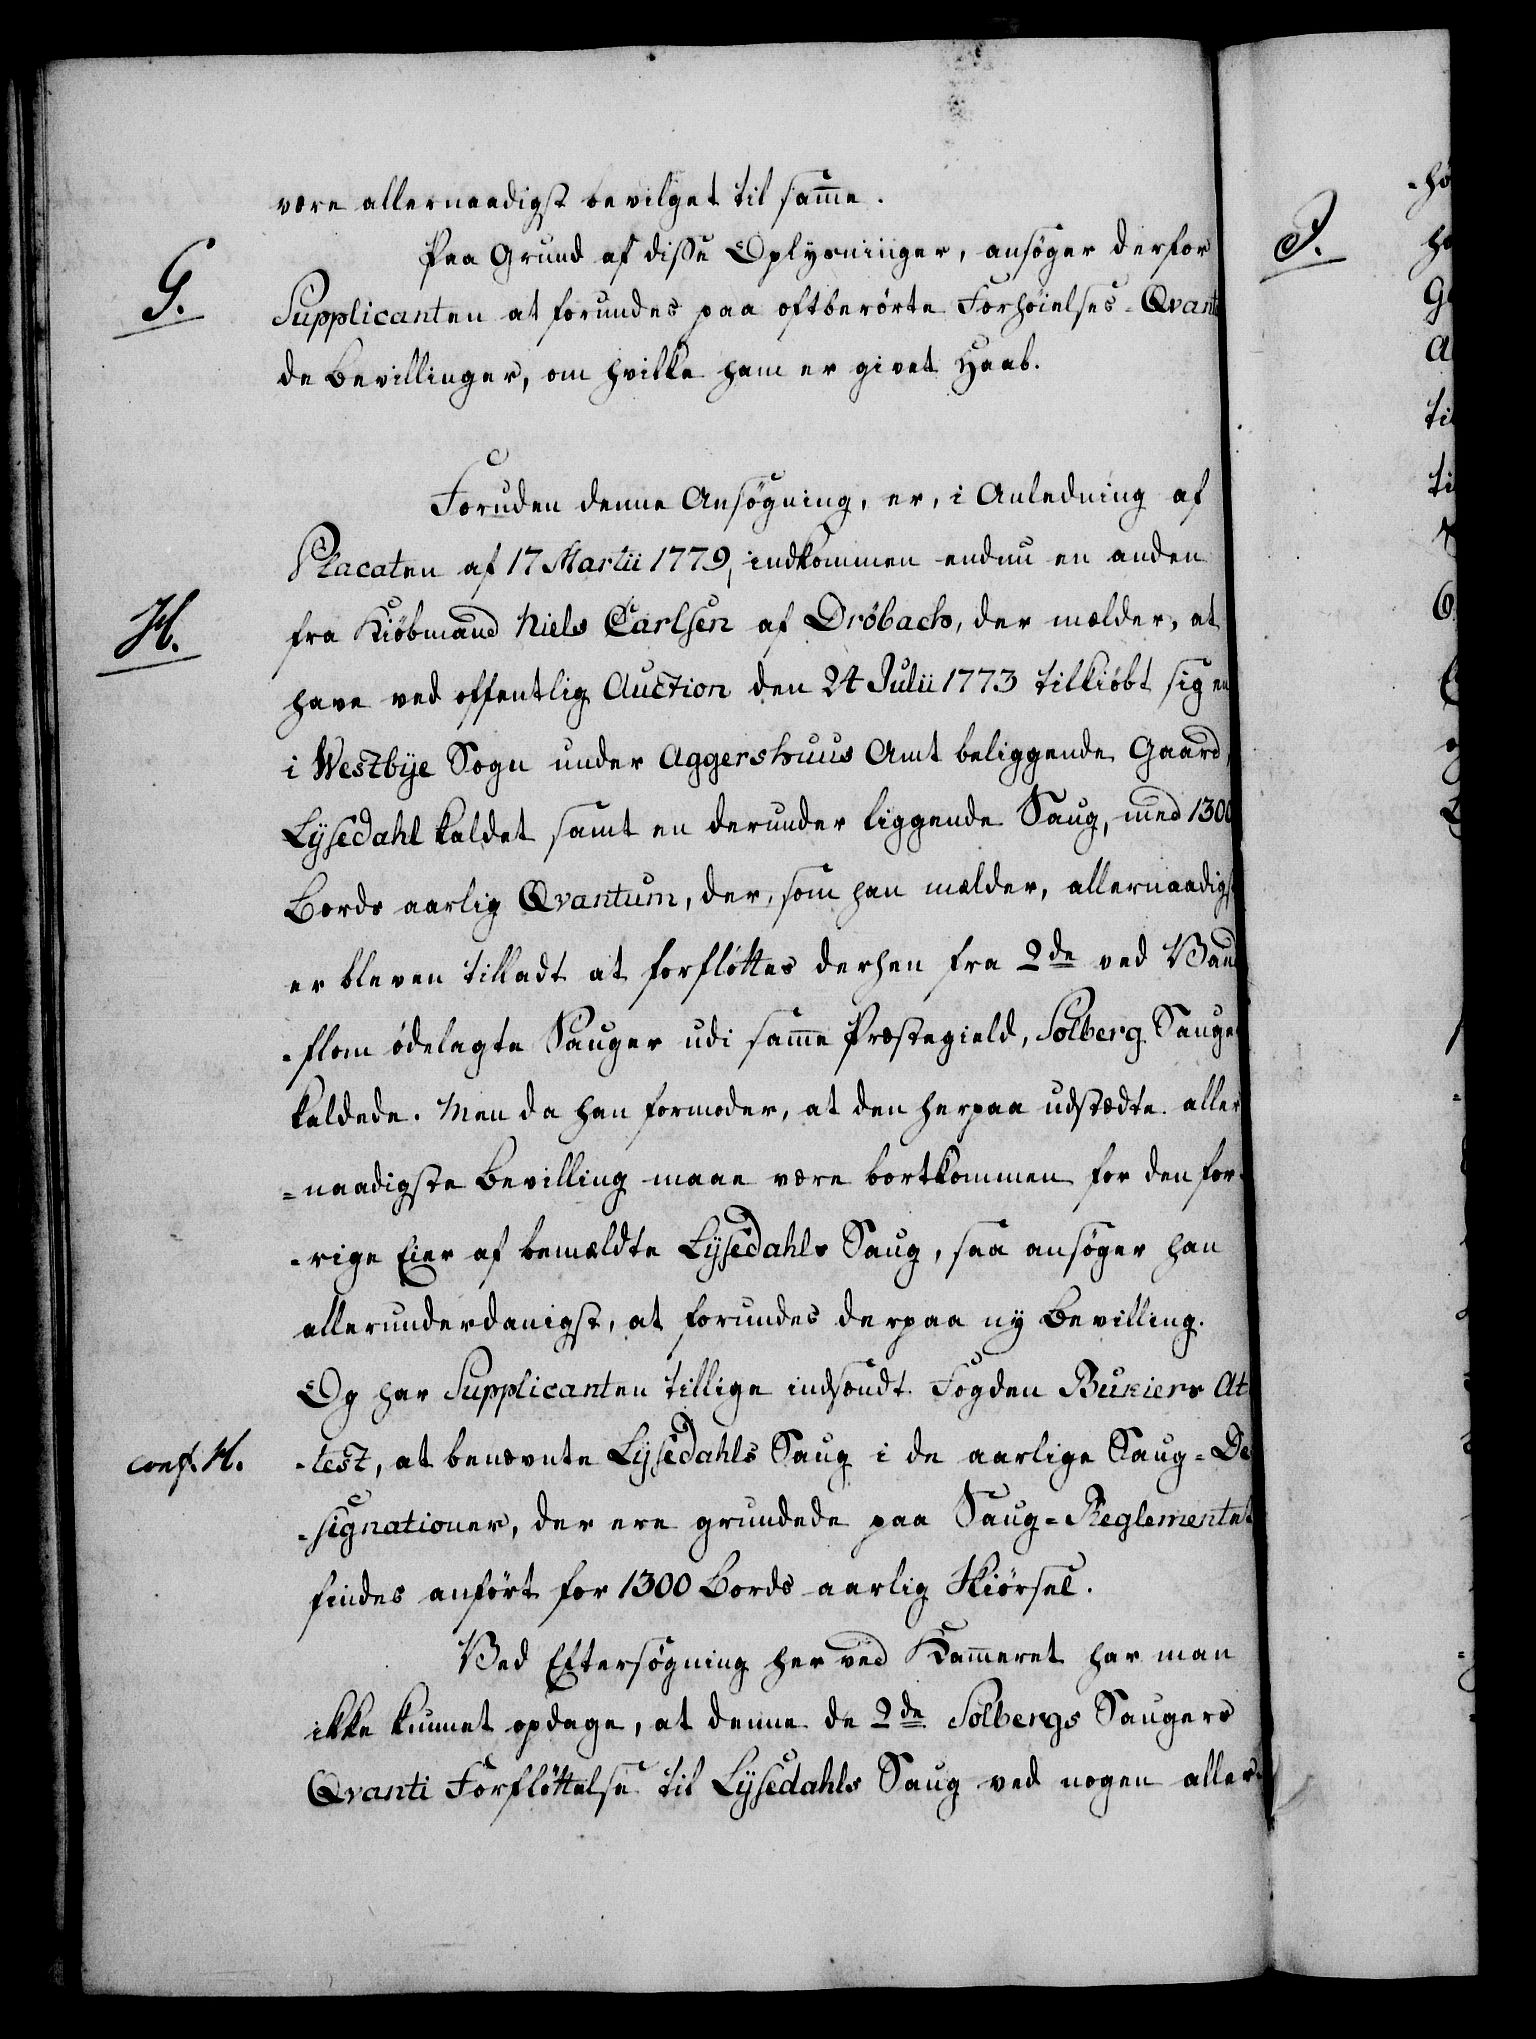 være allernaadigst bevilget til samme.
Paa Grund af disse Oplysninger, ansøger derfor
G.
Supplicanten at forundes paa oftberørte Forhøielses-Qvant
de Bevillinger, om hvilke ham er givet Haab.
Foruden denne Ansøgning, er, i Anledning af
Placaten af 17 Martii 1779, indkommen endnu en anden
H.
fra Kiøbmand Niels Carlsen af Drøbach, der melder, at
have ved offentlig Auction den 24 Julii 1773 tilkiøbt sig en
i Westbye Sogn under Aggershuus Amt beliggende Gaard,
Lysedahl kaldet samt en derunder liggende Saug, med 1300
Bords aarlig Qvantum, der, som han melder, allernaadigst
er bleven tilladt at forfløttes derhen fra 2de ved Vand
-flom ødelagte Sauger udi samme Præstegield, Solberg Sauge
kaldede. Men da han formoder, at den herpaa udstædte aller
=naadigste Bevilling maae være bortkommen for den for-
-rige Eier af bemældte Lysedahls Saug, saa ansøger han
allerunderdanigst, at forundes derpaa ny Bevilling.
Og har Supplicanten tillige indsendt Fogden Bukiers At
conf. H.
-test, at benævnte Lysedahls Saug i de aarlige Saug=De
-signationer, der ere grundede paa Saug=Reglementet
findes anført for 1300 Bords aarlig Skiørsel.
Ved Eftersøgning her ved Kammeret har man
ikke kunnet opdage, at denne de 2de Solbergs Saugers
Qvanti Forfløttelse til Lysedahls Saug ved nogen aller-
J.